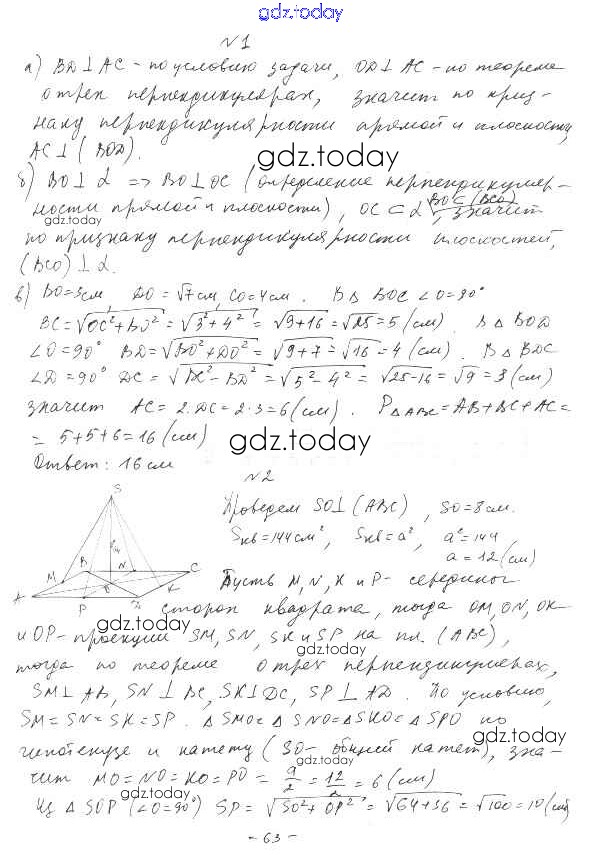 gdz.today
№1
а) BD⊥AC - по условию задачи, OD⊥AC - по теореме
о трех перпендикулярах, значит по приз-
наку перпендикулярности прямой и плоскости,
AC⊥(BOD).
gdz.today
б) BO⊥α => BO⊥OC (определение перпендикуляр-
ности прямой и плоскости), OC⊂α, BO⊂(BCO), значит
gdz.today
по признаку перпендикулярности плоскостей,
(BCO)⊥α.
в) BO=3см DO=√7см, CO=4см. В △ BOC ∠O=90°
BC=√OC²+BO²=√3²+4²=√9+16=√25=5 (см). В △ BOD
∠O=90° BD=√BO²+DO²=√9+7=√16=4 (см). В △ BDC
∠D=90° DC=√BC²-BD²=√5²-4²=√25-16=√9=3 (см)
значит AC=2·DC=2·3=6 (см). P△ABC=AB+BC+AC=
=5+5+6=16 (см)
gdz.today
Ответ: 16см
№2
Проведем SO⊥(ABC), SO=8см.
Sкв=144см², Sкв=a², a²=144
a=12 (см)
S
M B N C
A P K
Пусть M, N, K и P - середины
сторон квадрата, тогда OM, ON, OK
gdz.today
и OP - проекции SM, SN, SK и SP на пл. (ABC),
тогда по теореме о трех перпендикулярах,
SM⊥AB, SN⊥BC, SK⊥DC, SP⊥AD. По условию,
gdz.today
SM=SN=SK=SP. △SMO=△SNO=△SKO=△SPO по
гипотенузе и катету (SO - общий катет), зна-
чит MO=NO=KO=PO=a/2=12/2=6 (см)
gdz.today
Из △SOP (∠O=90°) SP=√SO²+OP²=√64+36=√100=10 (см)
- 63 -